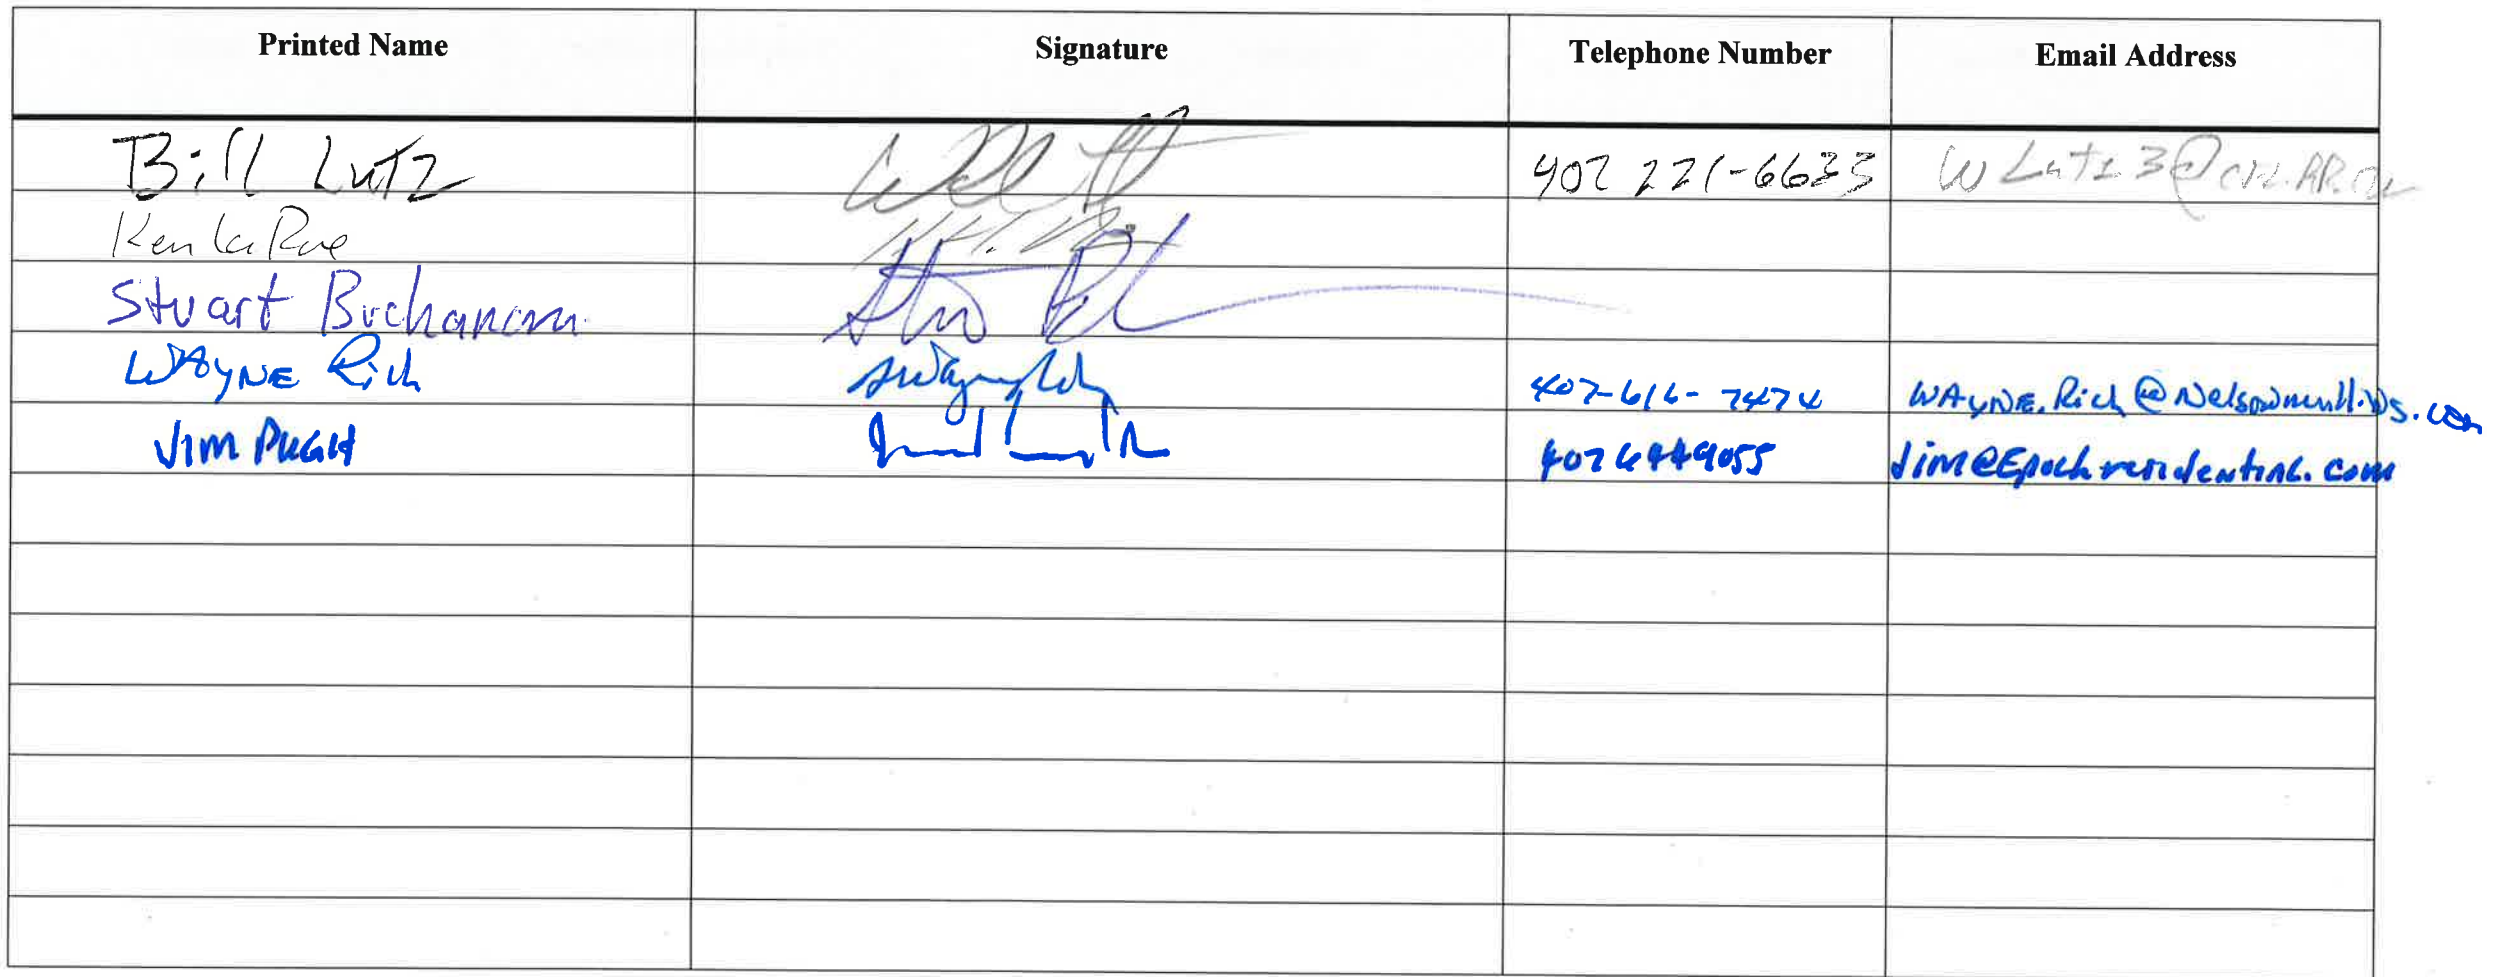 Printed Name Signature Telephone Number Email Address
Bill Lutz 407 221-6633
Ken LaRoe
Stuart Buchanan
WAYNE Rich 407-616-7474 WAYNE.Rich@Nelsonmullins.com
JIM PUGH 407 6449055 Jim@Epochresidential.com